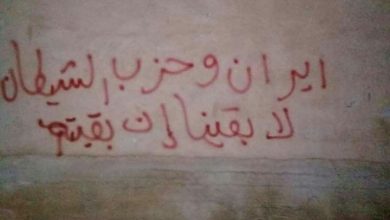 ايران وحزب الشيطان
لا بقينا إن بقيتم